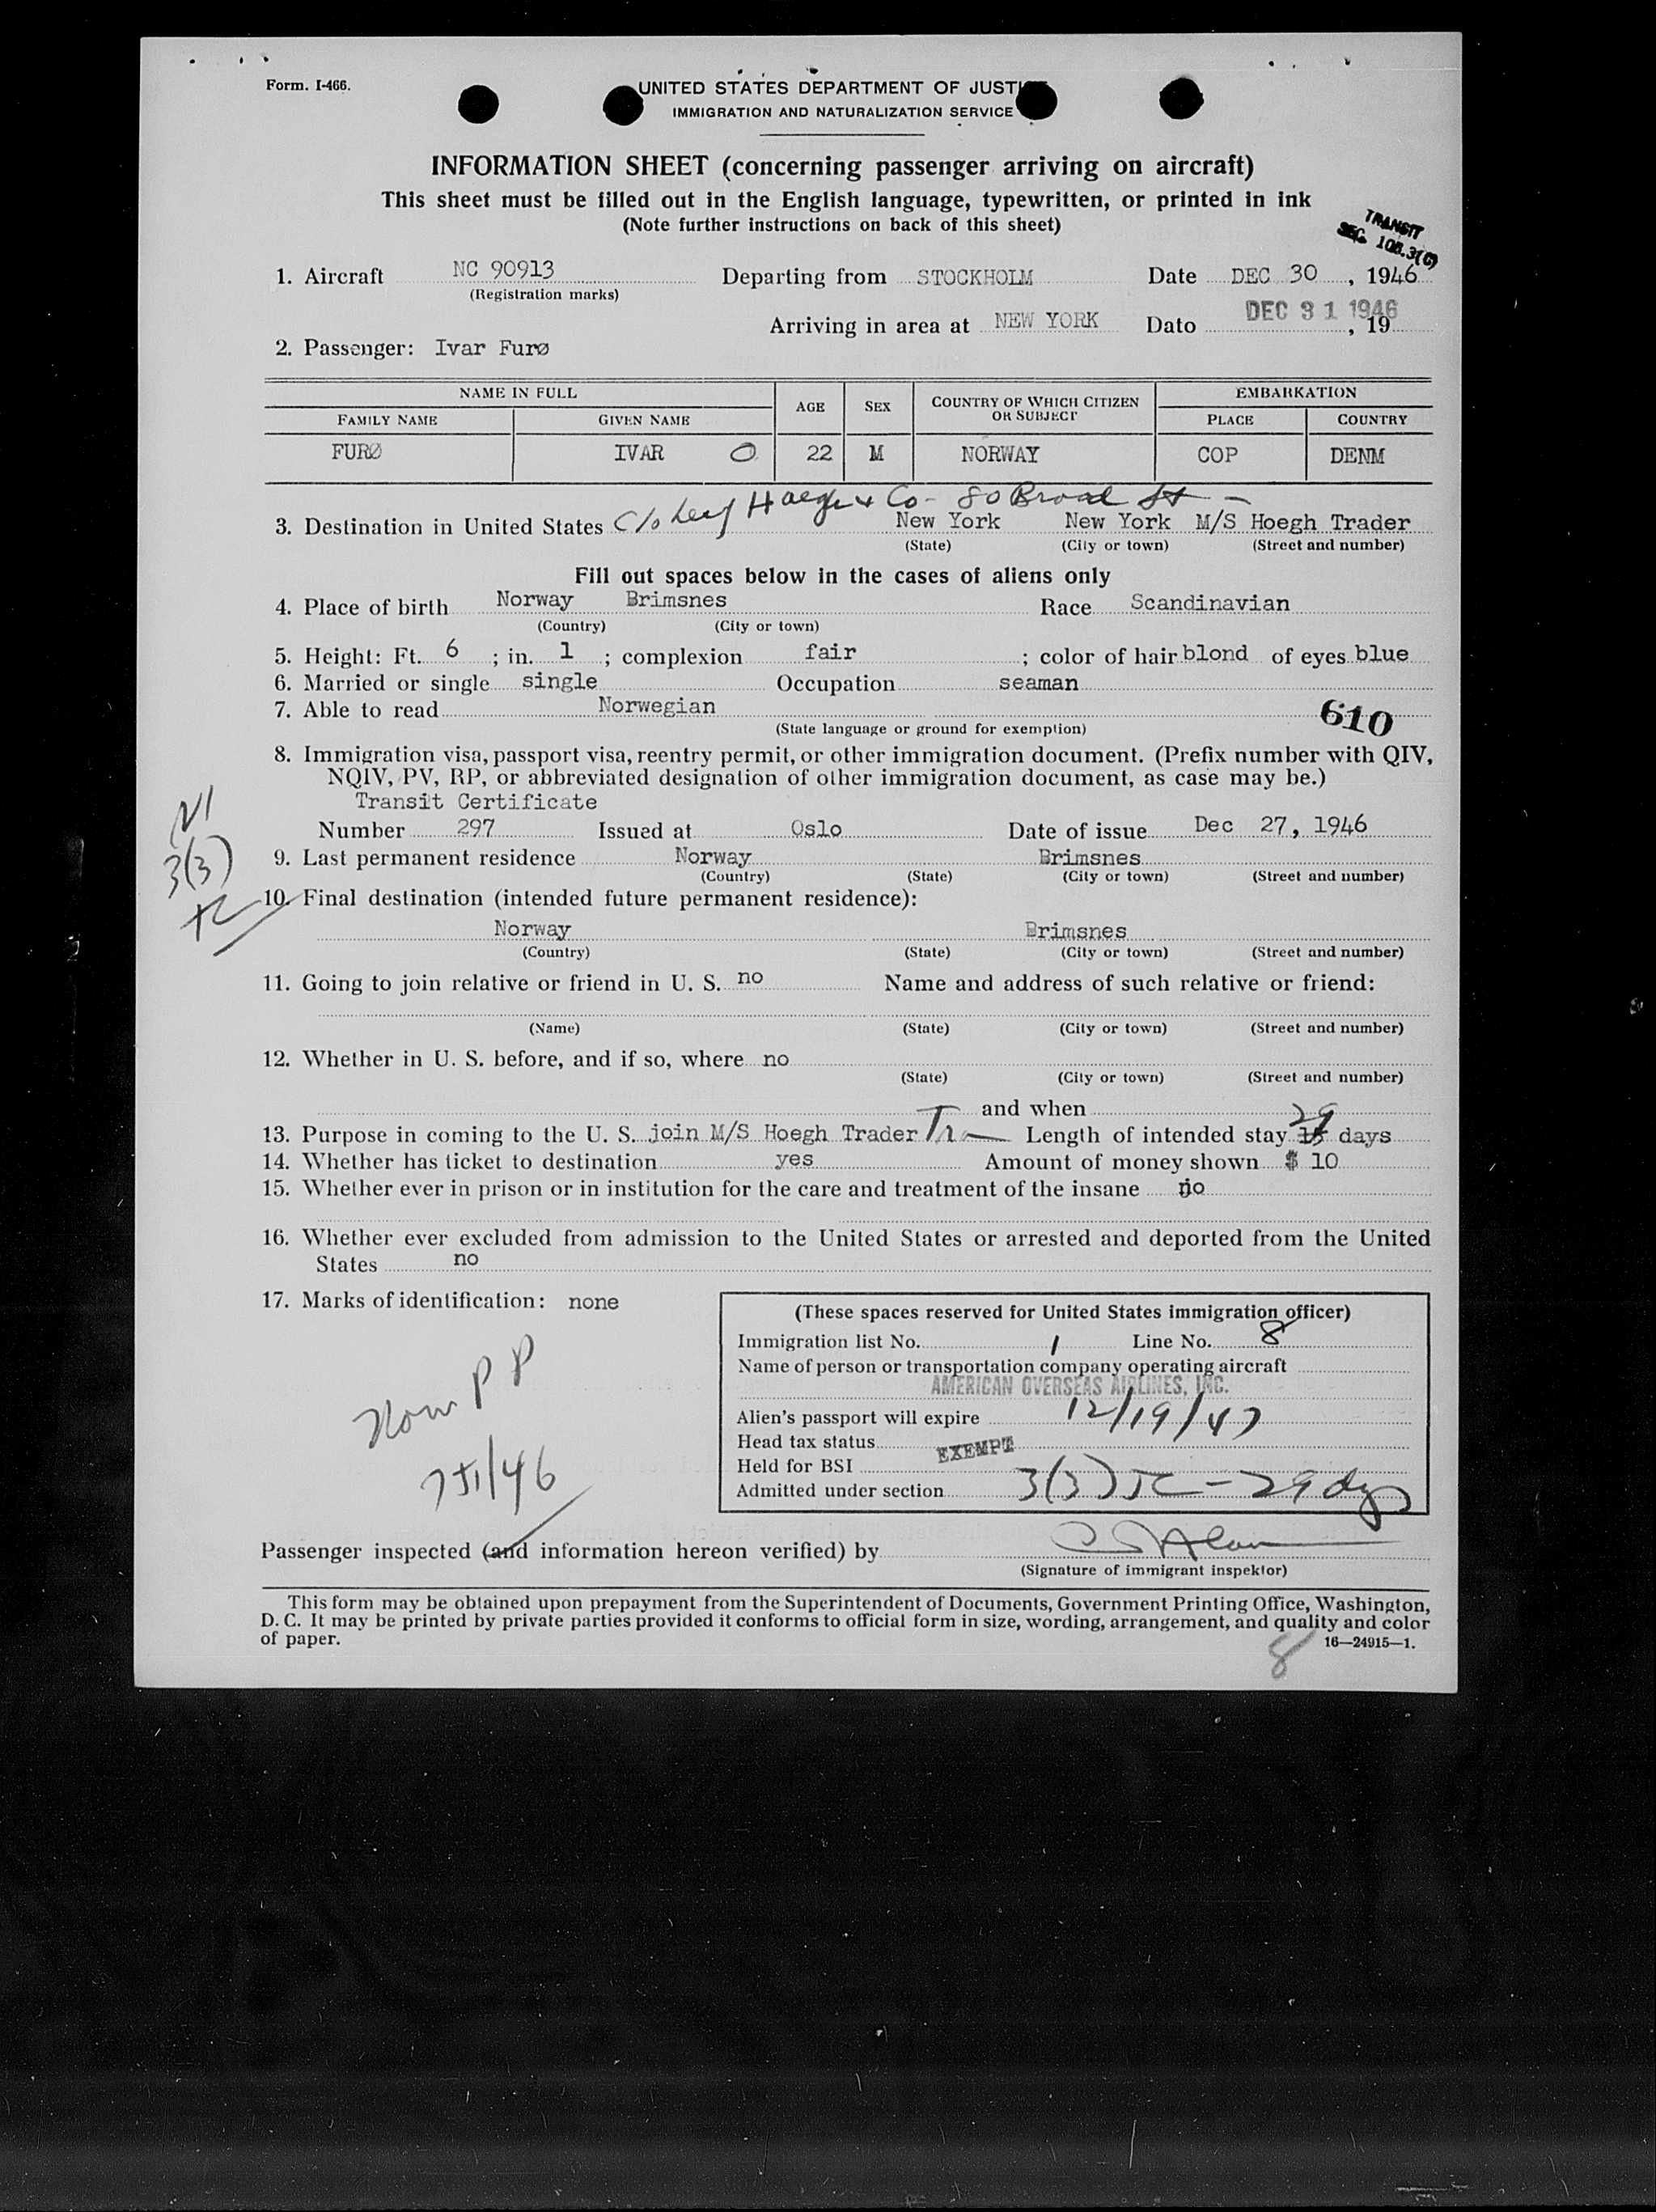 Form. I-466.
UNITED STATES DEPARTMENT OF JUSTI
IMMIGRATION AND NATURALIZATION SERVICE
INFORMATION SHEET (concerning passenger arriving on aircraft)
This sheet must be filled out in the English language, typewritten, or printed in ink
(Note further instructions on back of this sheet)
TRANSIT
SEC. 108.3(G)
1. Aircraft NC 90913 Departing from STOCKHOLM Date DEC 30, 1946
(Registration marks)
Arriving in area at NEW YORK Dato DEC 31 1946, 19
2. Passenger: Ivar Furø
NAME IN FULL AGE SEX COUNTRY OF WHICH CITIZEN OR SUBJECT EMBARKATION
FAMILY NAME GIVEN NAME PLACE COUNTRY
FURØ IVAR O 22 M NORWAY COP DENM
C/o Leif Haegh & Co - 80 Broad St -
3. Destination in United States New York New York M/S Hoegh Trader
(State) (City or town) (Street and number)
Fill out spaces below in the cases of aliens only
4. Place of birth Norway Brimsnes Race Scandinavian
(Country) (City or town)
5. Height: Ft. 6 ; in. 1 ; complexion fair ; color of hair blond of eyes blue
6. Married or single single Occupation seaman
7. Able to read Norwegian 610
(State language or ground for exemption)
8. Immigration visa, passport visa, reentry permit, or other immigration document. (Prefix number with QIV,
NQIV, PV, RP, or abbreviated designation of other immigration document, as case may be.)
Transit Certificate
Number 297 Issued at Oslo Date of issue Dec 27, 1946
3(3)
9. Last permanent residence Norway Brimsnes
(Country) (State) (City or town) (Street and number)
10. Final destination (intended future permanent residence):
Norway Brimsnes
(Country) (State) (City or town) (Street and number)
11. Going to join relative or friend in U. S. no Name and address of such relative or friend:
(Name) (State) (City or town) (Street and number)
12. Whether in U. S. before, and if so, where no
(State) (City or town) (Street and number)
and when
13. Purpose in coming to the U. S. join M/S Hoegh Trader Length of intended stay 29 days
14. Whether has ticket to destination yes Amount of money shown $ 10
15. Whether ever in prison or in institution for the care and treatment of the insane no
16. Whether ever excluded from admission to the United States or arrested and deported from the United
States no
17. Marks of identification: none
(These spaces reserved for United States immigration officer)
Immigration list No. 1 Line No. 8
Name of person or transportation company operating aircraft
AMERICAN OVERSEAS AIRLINES, INC.
Alien's passport will expire 12/19/47
Head tax status EXEMPT
Held for BSI
Admitted under section 3(3) TC - 29 dys
Passenger inspected (and information hereon verified) by
(Signature of immigrant inspektor)
This form may be obtained upon prepayment from the Superintendent of Documents, Government Printing Office, Washington,
D. C. It may be printed by private parties provided it conforms to official form in size, wording, arrangement, and quality and color
of paper.
16—24915—1.
8